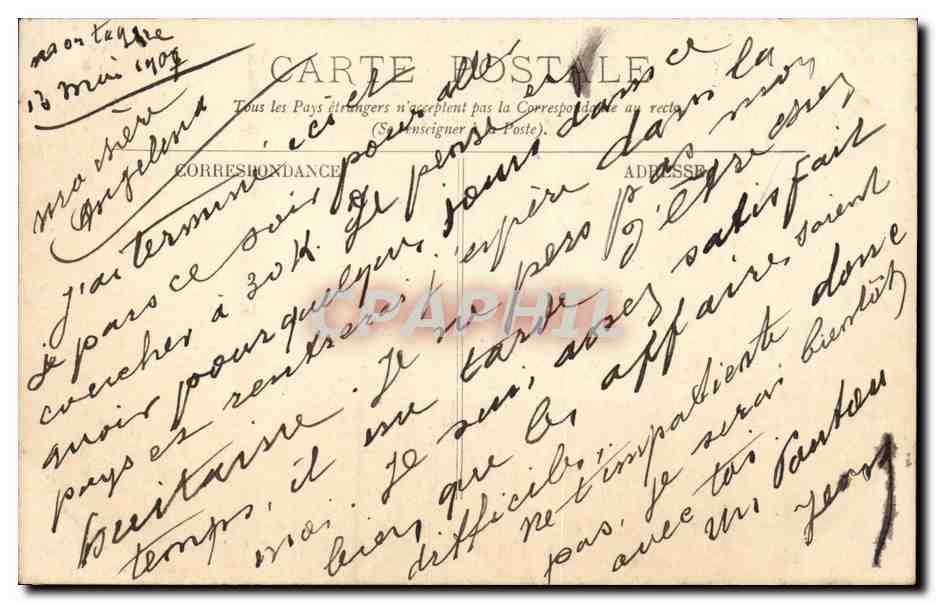 mortagne
13 mai 1907
ma chère
Angelina
CARTE POSTALE
Tous les Pays étrangers n'acceptent pas la Correspondance au recto
(Se renseigner à la Poste).
CORRESPONDANCE
ADRESSE
j'ai terminé ici et
je pars ce soir pour allé
coucher à 30 K. Je pense en
avoir pour quelques jours dans ce
pays et rentrerai j'espère dans la
huitaine. Je ne pers pas mon
temps, il me tarde d'être chez
moi. Je suis assez satisfait
bien que les affaires soient
difficiles, ne t'impatiente donc
pas, je serai bientôt
avec toi.
CPAPHIL